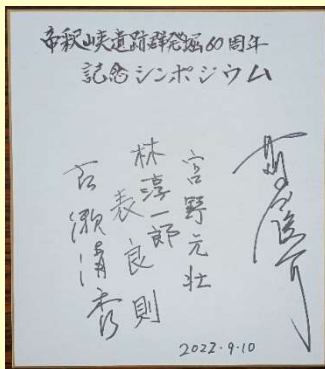 帝釈峡遺跡群発掘60周年
記念シンポジウム
宮野元壮
林淳一郎
表良則
古瀬清秀
2022・9・10